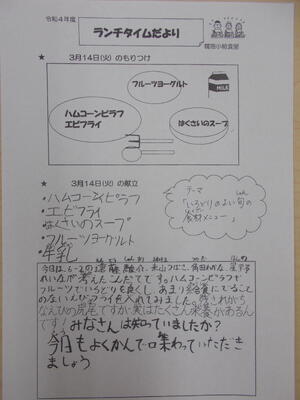 令和4年度
ランチタイムだより
小給食室
★ 3月14日(火)のもりつけ
フルーツヨーグルト
MILK
ハムコーンピラフ
エビフライ
はくさいのスープ
★ 3月14日(火)の献立
・ハムコーンピラフ
・エビフライ
はくさいのスープ
・フルーツヨーグルト
・牛乳
テーマ
しゅん
「いろどりのよい旬の
食材メニュー」
今日は6-2の
れいなが考えたこんだてです。ハムコーンピラフや
フルーツでいろどりを良くし、あまり給食にでること
のないエビフライを入れてみました。残されがち
なえびの尾ですが、実はたくさん栄養があるん
です!みなさんは知っていましたか?
今日もよくかんで味わっていただき
ましょう